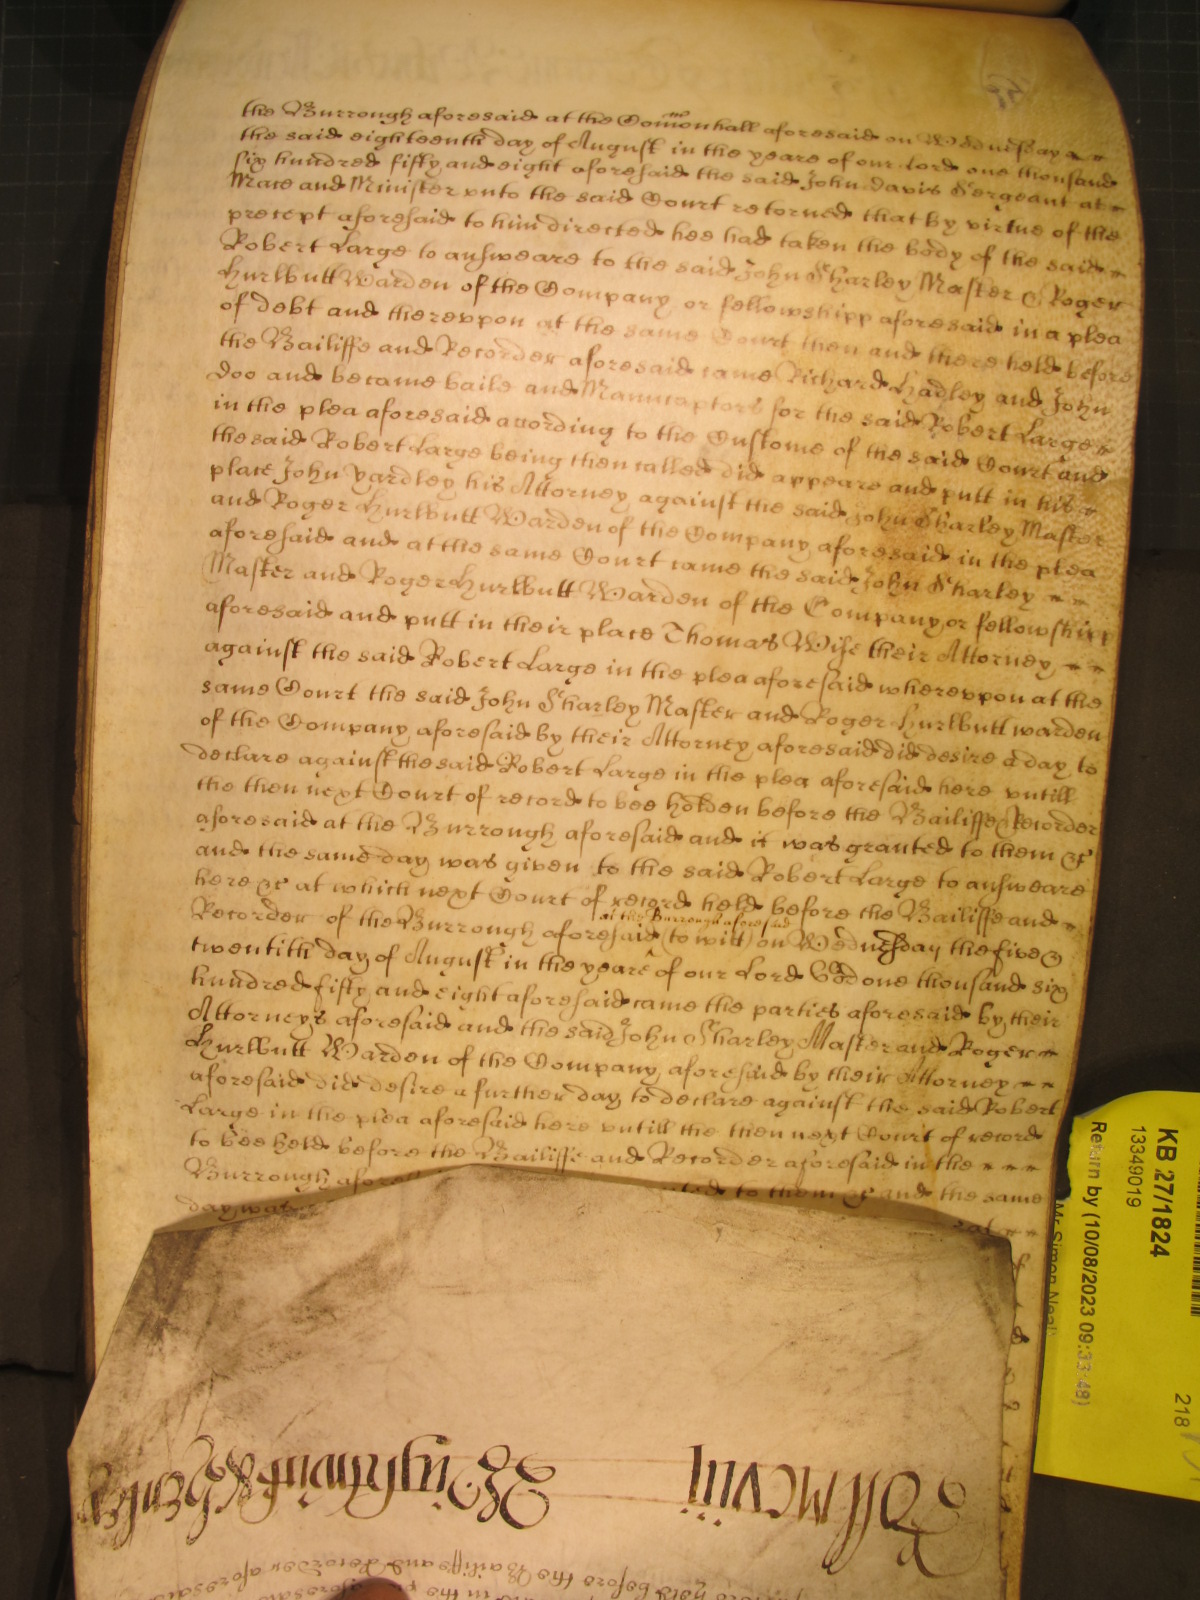 the Burrough aforesaid at the Comonhall aforesaid on Wednesday
the said eighteenth day of August in the yeare of our Lord one thousand
six hundred fifty and eight aforesaid the said John Davis Sergeant at
Mace and Minister vnto the said Court retorned that by virtue of the
precept aforesaid to him directed hee had taken the body of the said
Robert Large to answeare to the said John Sharley Master & Roger
Hurlbutt Warden of the Company or fellowshipp aforesaid in a plea
of debt and therevpon at the same Court then and there held before
the Bailiffe and Recorder aforesaid came Richard Hadley and John
Doo and became baile and Manucaptors for the said Robert Large
in the plea aforesaid acording to the Custome of the said Court and
the said Robert Large being then called did appeare and putt in his
place John Yardley his Attorney against the said John Sharley Master
and Roger Hurlbutt Warden of the Company aforesaid in the plea
aforesaid and at the same Court came the said John Sharley
Master and Roger Hurlbutt Warden of the Company or fellowshipp
aforesaid and putt in their place Thomas Wise their Attorney
against the said Robert Large in the plea aforesaid wherevpon at the
same Court the said John Sharley Master and Roger Hurlbutt warden
of the Company aforesaid by their Attorney aforesaid did desire a day to
declare against the said Robert Large in the plea aforesaid here vntill
the then next Court of record to bee holden before the Bailiffe & Recorder
aforesaid at the Burrough aforesaid and it was granted to them &c
and the same day was given to the said Robert Large to answeare
here &c at which next Court of record held before the Bailiffe and
at the Burrough aforesaid
Recorder of the Burrough aforesaid (to witt) on Wednesday the five &
twentith day of August in the yeare of our Lord God one thousand six
hundred fifty and eight aforesaid came the parties aforesaid by their
Attorneys aforesaid and the said John Sharley Master and Roger
Hurlbutt Warden of the Company aforesaid by their Attorney
aforesaid did desire a further day to declare against the said Robert
Large in the plea aforesaid here vntill the then next Court of record
to bee held before the Bailiffe and Recorder aforesaid in the
Burrough to them &c and the same
day was
KB 27/1824
13349019
Return by (10/08/2023 09:33:48)
Mr Simon Neal
218